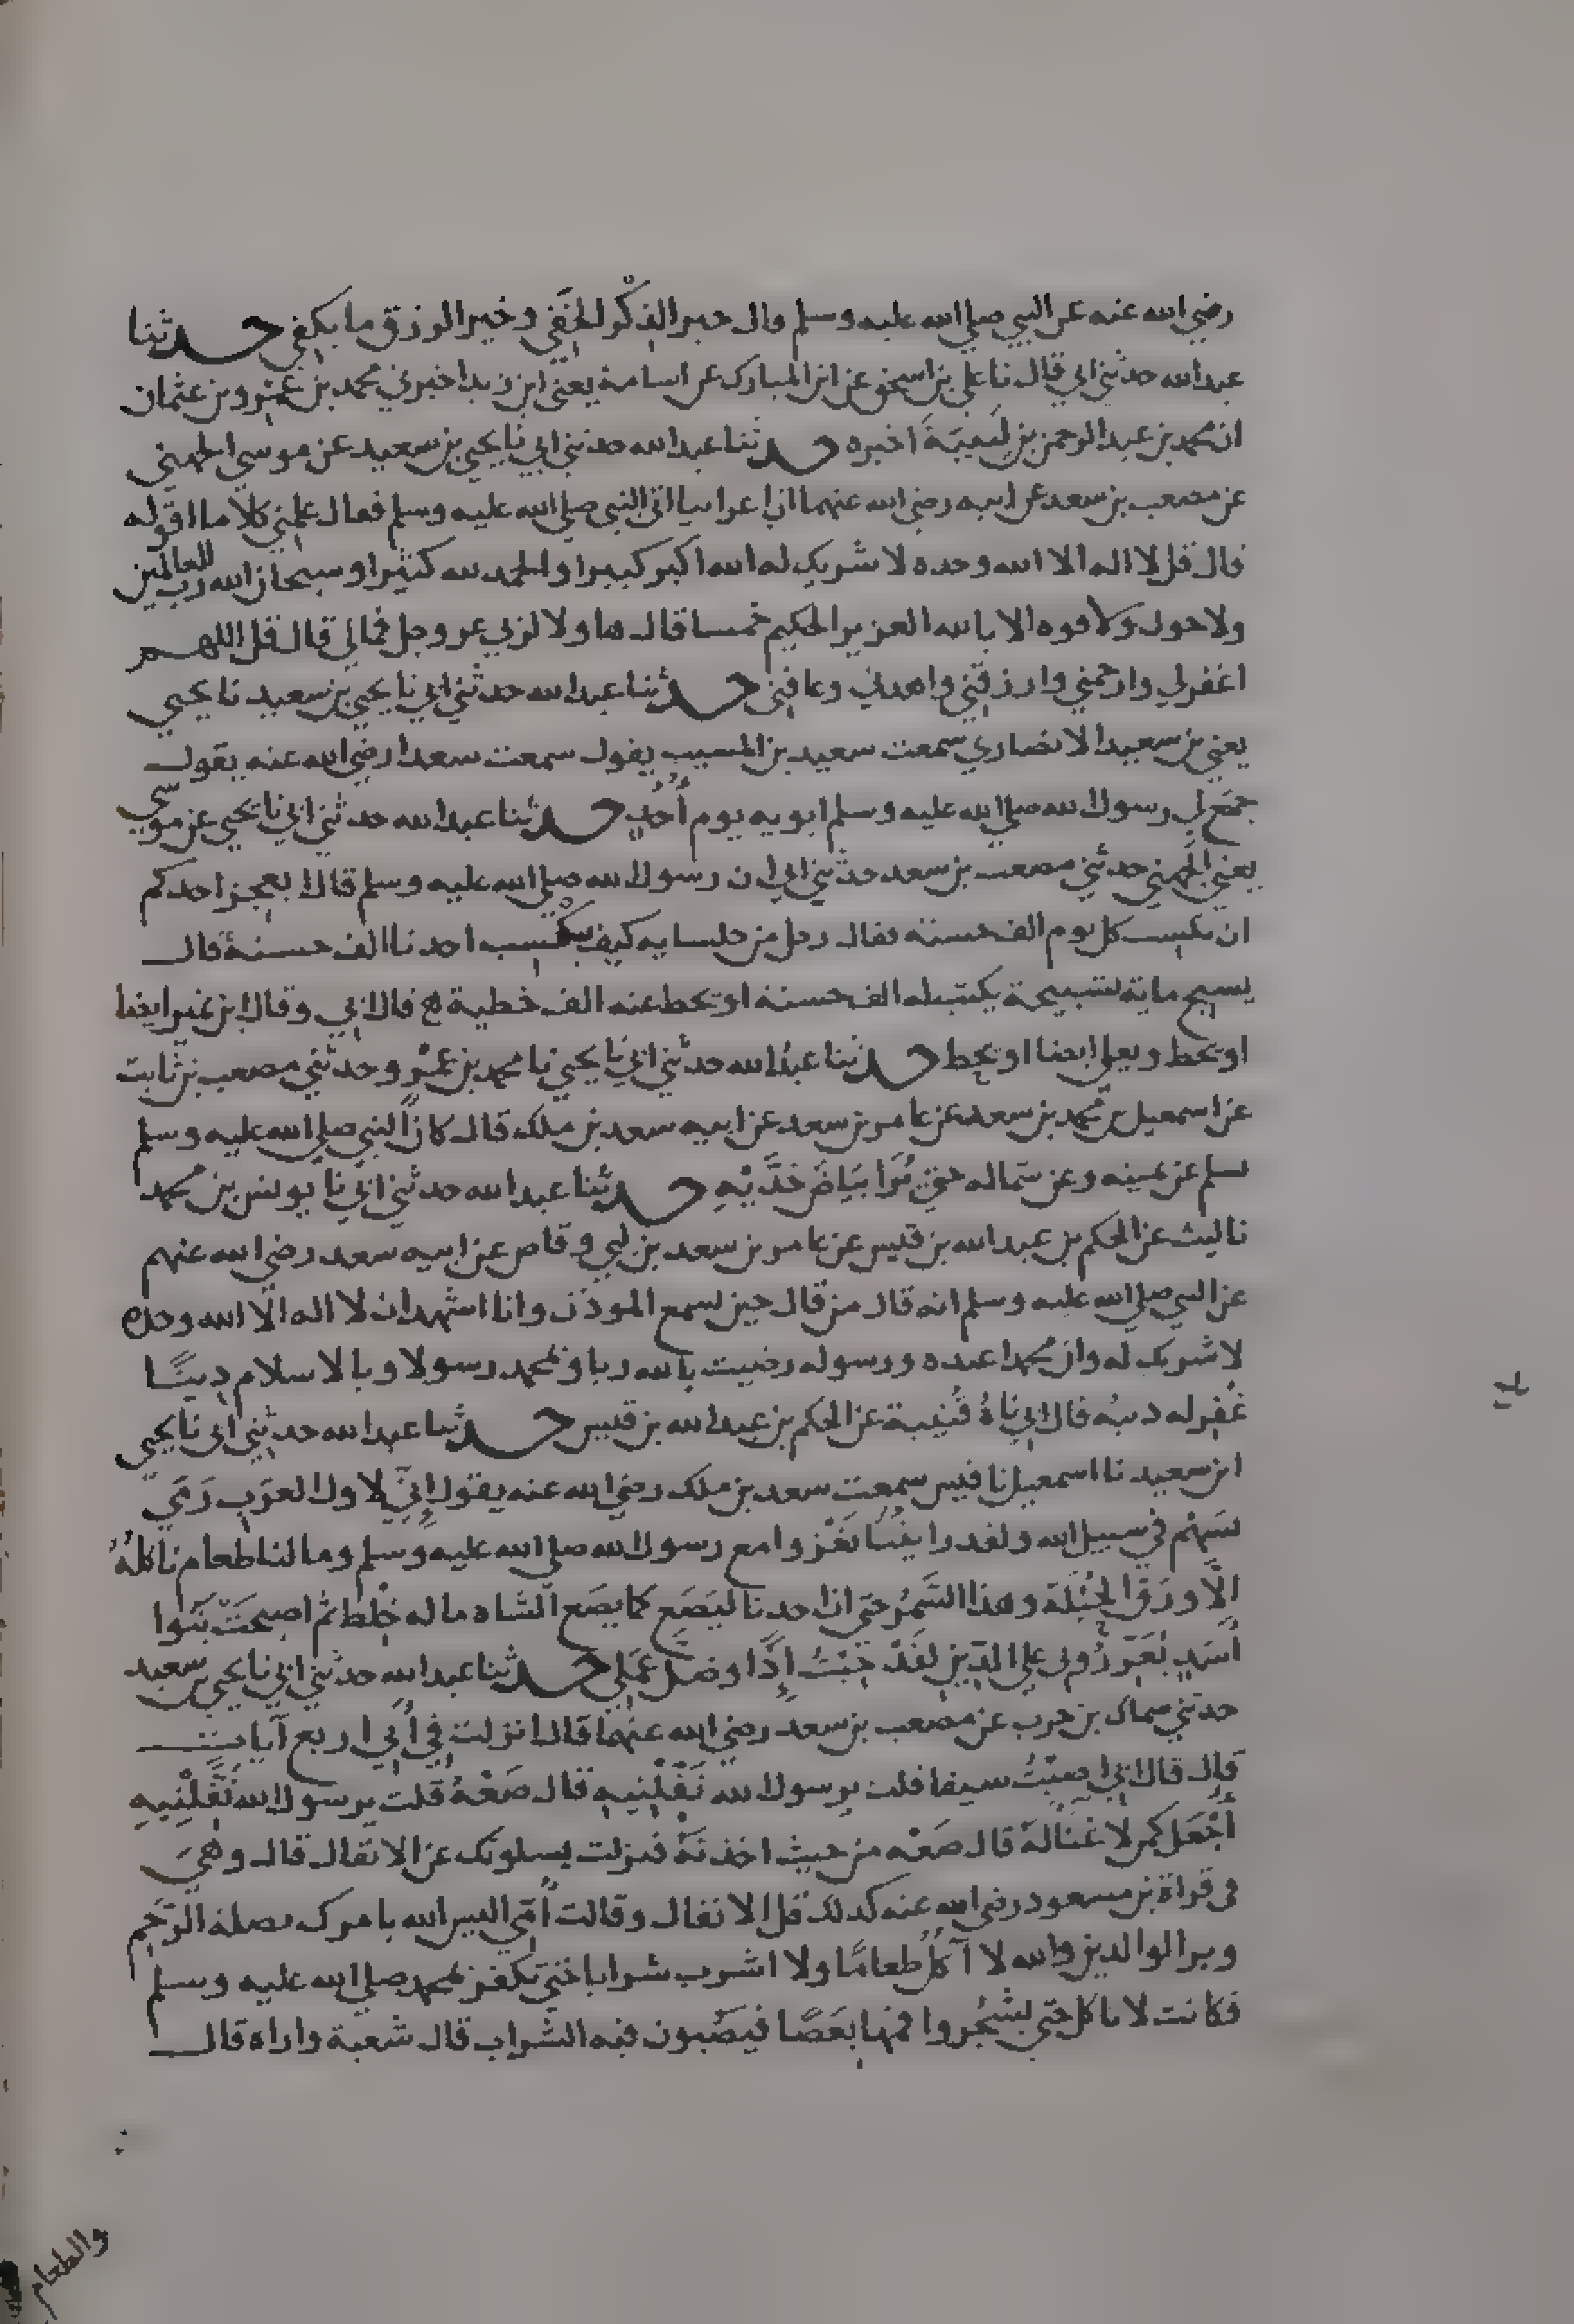 رضي الله عنه عن النبي صلى الله عليه وسلم قال خير الذِكْر الخَفَي وخير الرزق ما يكفي حدثنا
عبد الله حدثني ابي قال نا علي بن اسحق عن ابن المبارك عن اسامة يعني ابن زيد اخبرني محمد بن عَمْرو بن عثمان
ان محمد بن عبد الرحمن بن لَبيبَةَ اخبره حدثنا عبد الله حدثني ابي نا يحيى بن سعيد عن موسى الجهني
عن مصعب بن سعد عن ابيه رضي الله عنهما ان اعرابيا اتى النبي صلى الله عليه وسلم فقال علمني كلاما اقوله
قال قل لا اله الا الله وحده لا شريك له الله اكبر كبيرا والحمد لله كثيرا وسبحان الله رب العالمين
ولا حول ولا قوه الا بالله العزيز الحكيم خمسا قال هاولا لربي عز وجل فمالي قال قل اللهم
اغفر لي وارحمني وارزقني واهدني وعافني حدثنا عبد الله حدثني ابي نا يحيى بن سعيد نا يحيى
يعني بن سعيد الانصاري سمعت سعيد بن المسيب يقول سمعت سعدا رضي الله عنه يقول
جمَع لي رسول الله صلى الله عليه وسلم ابويه يوم أُحُدٍ حدثنا عبد الله حدثني ابي نا يحيى عن موسى
يعني الجُهني حدثني مصعب بن سعد حدثني ابي ان رسول الله صلى الله عليه وسلم قال ايعجز احدكم
ان يكسب كل يوم الف حسنة فقال رجل من جلسايه كيف يكسب احدنا الف حسنة قال
يسبح ماية تسبيحة يكتب له الف حسنة او تحط عنه الف خطية قال ابي وقال ابن نمير ايضا
او تحط ويعلى ايضا او تحط حدثنا عبد الله حدثني ابي نا يحيى نا محمد بن عَمْرو حدثني مصعب بن ثابت
عن اسمعيل بن محمد بن سعد عن عامر بن سعد عن ابيه سعد بن ملك قال كان النبي صلى الله عليه وسلم
يسلم عن يمينه وعن شماله حتى تُرَا بَيَاضُ خَدَّيْهِ حدثنا عبد الله حدثني ابي نا يونس بن محمد
نا ليث عن الحكم بن عبد الله بن قيس عن عامر بن سعد بن ابي وقاص عن ابيه سعد رضي الله عنهم
عن النبي صلى الله عليه وسلم انه قال من قال حين يسمع الموذن وانا اشهد ان لا اله الا الله وحده
لا شريك له وان محمدا عبده ورسوله رضيت بالله ربا وبمحمد رسولا وبالاسلام دينًا
غُفِر له ذنبه قال ابي ناهُ قُتيبة عن الحكم بن عبد الله بن قيس حدثنا عبد الله حدثني ابي نا يحيى
ابن سعيد نا اسمعيل نا قيس سمعت سعد بن ملك رضي الله عنه يقول إِنّي لاول العرَب رَمَيَ
بسَهْم في سبيل الله ولقد رايتُنا نَغْزوا مع رسول الله صلى الله عليه وسلم وما لنا طعام ناكلُهُ
الّا ورَق الحُبُلَة وهذا السَّمُر حتى ان احدنا ليَضَع كما يضَع الشاه ما له خِلْط ثم اصبحَتْ بَنوا
أسَدٍ يُعَزِّرُوني على الدّين لقَدْ خِبْتُ إِذًا وضلّ عَمَلي حدثنا عبد الله حدثني ابي نا يحيى بن سعيد
حدثني سماك بن حرب عن مصعب بن سعد رضي الله عنهما قال انزلت في أَبي اربع آيات
قال قال ابي اصبْتُ سيفا قلت يرسول الله نَفِّلْنِيهِ قال ضَعْهُ قلت يرسول الله نَفِّلْنِيهِ
أُجْعَل كمن لا غَنَا لهُ قال ضَعْه من حيث اخذتَهُ فنزلت يسلونك عن الانفال قال وهيَ
في قراة بن مسعود رضي الله عنه كذلك قل الانفال وقالت أُمّي اليس الله يامرك بصلة الرَّحِم
وبر الوالدين والله لا آكُلُ طعامًا ولا اشرب شرابا حتى تكفر بمحمد صلى الله عليه وسلم
فكانت لا تاكل حتى يشْجُروا فمها بعَصًا فيَصُبون فيه الشراب قال شعبة واراه قال
والطعام